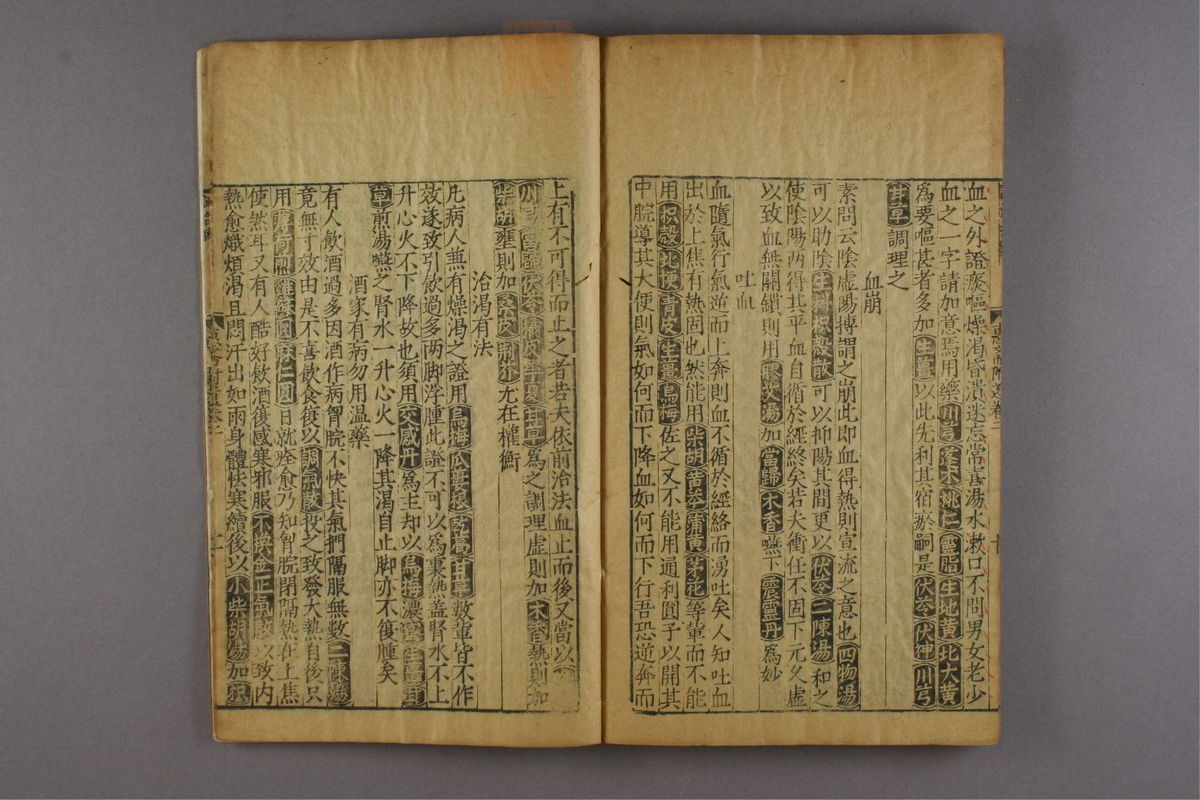 血之外證嘔燥渴昏潰迷忘常喜湯水漱口不問男女老少
血之一字請加意焉用藥川芎桃仁靈脂生地黃北大黃
爲要嘔甚者多加生薑以此先利其宿瘀嗣是茯苓茯神川芎
甘草調理之
血崩
素問云陰虛陽搏謂之崩此即血得熱則宣流之意也四物湯
可以助陰生料枳殼散可以抑陽其間更以茯苓二陳湯和之
使陰陽兩得其平血自循於經終矣若夫衝任不固下元久虛
以致血無關鎖則用膠艾湯加當歸木香嚥下震靈丹爲妙
吐血
血隨氣行氣逆而上奔則血不循於經絡而湧吐矣人知吐血
出於上焦有熱固也然能用柴胡黃芩蒲黃茅花等輩而不能
用枳殼北梗青皮生薑烏梅佐之又不能用通利圓子以開其
中脘導其大便則氣如何而下降血如何而下行吾恐逆奔而
上有不可得而止之者若夫依前治法血止而後又當以
川芎當歸茯苓橘皮半夏甘草爲之調理虛則加木香熱則加
柴胡壅則加桑皮荊芥尤在權衡
治渴有法
凡病人兼有燥渴之證用烏梅瓜蔞根甘草數輩皆不作
效遂致引飲過多兩脚浮腫此證不可以爲裏熱蓋腎水不上
升心火不下降故也須用交感丹爲主却以烏梅濃生薑甘
草煎湯嚥之腎水一升心火一降其渴自止脚亦不復腫矣
酒家有病勿用溫藥
有人飲酒過多因酒作病胷脘不快其氣捫隔服無數二陳湯
竟無寸效由是不喜飲食復以調氣散投之致發大熱自後只
用麻仁圓日就痊愈乃知胷脘閉隔熱在上焦
使然耳又有人酷好飲酒復感寒邪服不換金正氣散以致內
熱愈熾煩渴且悶汗出如雨身體怏寒續後以小柴胡湯加枳